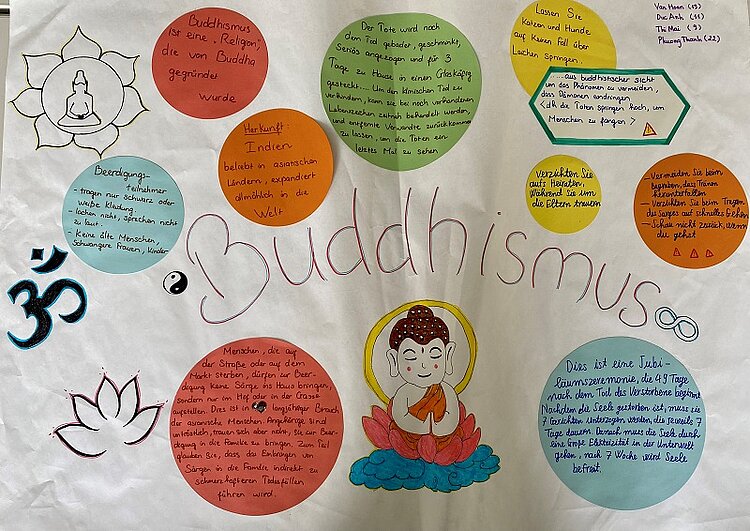 Buddhismus
ist eine „Religion",
die von Buddha
gegründet
wurde
Der Tote wird nach
dem Tod gebadet, geschminkt,
Seriös angezogen und für 3
Tage zu Hause in einen Glaskäfig
gesteckt.... Um den klinischen Tod zu
verhindern, kann sie bei noch vorhandenen
Lebenszeichen zeitnah behandelt werden,
und entfernte Verwandte zurückkommen
zu lassen, um die Toten ein
letztes Mal zu sehen
Lassen Sie
Katzen und Hunde
auf keinen Fall über
Leichen springen.
Van Hoan (19)
Duc Anh (11)
Thi Mai (9)
Phuong Thanh (22)
...aus buddhistischer Sicht
um das Phänomen zu vermeiden,
dass Dämonen eindringen
<dh die Toten springen hoch, um
Menschen zu fangen>
Herkunft:
Indien
beliebt in asiatischen
Ländern, expandiert
allmählich in die
Welt
Beerdigungs-
teilnehmer
- tragen nur schwarz oder
weiße Kleidung.
- lachen nicht, sprechen nicht
zu laut.
- Keine alte Menschen,
Schwangere Frauen, Kinder
Verzichten Sie
aufs Heiraten,
während Sie um
die Eltern trauern
- Vermeiden Sie beim
begraben, dass Tränen
herunterfallen
- Verzichten Sie beim Tragen
des Sarges auf schnelles Gehen
- Schau nicht zurück, wenn
du gehst
Buddhismus
Menschen, die auf
der Straße oder auf dem
Markt sterben, dürfen zur Beer-
digung keine Särge ins Haus bringen,
sondern nur im Hof oder in der Gasse
aufstellen. Dies ist ein langjähriger Brauch
der asiatische Menschen. Angehörige sind
untröstlich, trauen sich aber nicht, sie zur Beer-
digung in die Familie zu bringen. Zum Teil
glauben Sie, dass das Einbringen von
Särgen in die Familie indirekt zu
schmerzhafteren Todesfällen
führen wird.
Dies ist eine Jubi-
läumszeremonie, die 49 Tage
nach dem Tod des Verstorbene beginnt
Nachdem die Seele gestorben ist, muss sie
7 Gerichten unterzogen werden, die jeweils 7
Tage dauern. Danach muss die Seele durch
eine große in der Unterwelt
gehen, nach 7 Woche wird Seele
befreit.